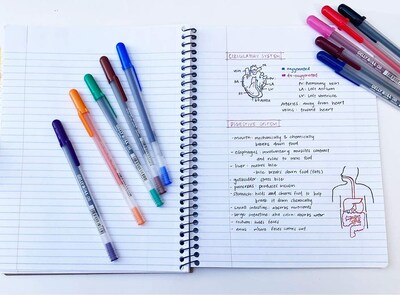 CIRCULATORY SYSTEM
= oxygenated
= de-oxygenated
PV: Pulmonary Vein
LA: Left Atrium
LV: Left Ventricle
Arteries: away from heart
veins: toward heart
DIGESTIVE SYSTEM
- mouth: mechanically & chemically
breaks down food
- esophagus: involuntary muscles contract
and relax to move food
- liver: makes bile
bile: breaks down food (fats)
- gallbladder: stores bile
- pancreas: produces insulin
- stomach: holds and churns food to help
break it down chemically
- small intestine: absorbs nutrients
- large intestine: aka colon: absorbs water
- rectum: holds feces
- anus: where feces comes out